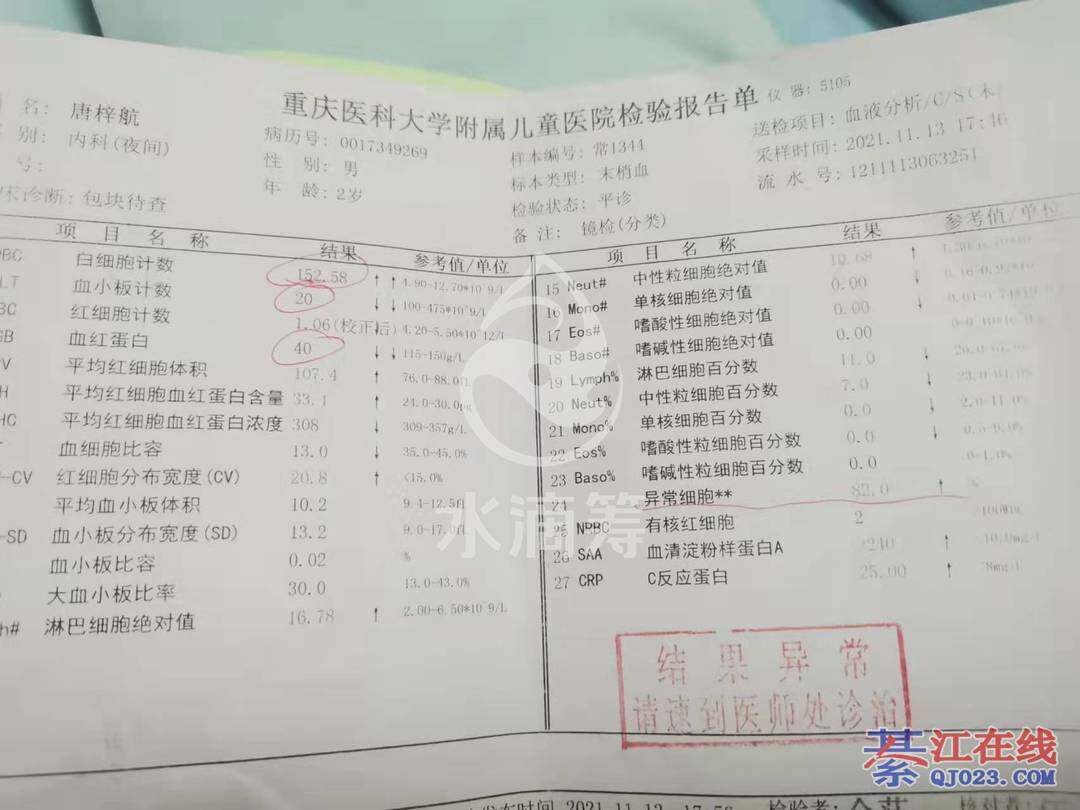 重庆医科大学附属儿童医院检验报告单
仪 器: 5105
名: 唐梓航
病历号: 0017349269
样本编号: 常1344
送检项目: 血液分析/C/S(末)
别: 内科(夜间)
性 别: 男
标本类型: 末梢血
采样时间: 2021.11.13 17:46
号:
年 龄: 2岁
检验状态: 平诊
流 水 号: 1211113063251
床诊断: 包块待查
备 注: 镜检(分类)
项 目 名 称 结果 参考值/单位
白细胞计数 152.58 ↑ 4.90-12.70*10^9/L
血小板计数 20 ↓ 100-475*10^9/L
红细胞计数 1.06(校正后) 4.20-5.50*10^12/L
血红蛋白 40 ↓ 115-150g/L
平均红细胞体积 107.4 ↑ 76.0-88.0fL
平均红细胞血红蛋白含量 33.1 ↑ 24.0-30.0pg
平均红细胞血红蛋白浓度 308 ↓ 309-357g/L
血细胞比容 13.0 ↓ 35.0-45.0%
-CV 红细胞分布宽度(CV) 20.8 ↑ <15.0%
平均血小板体积 10.2 9.4-12.5fL
-SD 血小板分布宽度(SD) 13.2 9.0-17.0fL
血小板比容 0.02 %
大血小板比率 30.0 13.0-43.0%
h# 淋巴细胞绝对值 16.78 ↑ 2.00-6.50*10^9/L
项 目 名 称 结果 参考值/单位
15 Neut# 中性粒细胞绝对值 10.68 ↑
16 Mono# 单核细胞绝对值 0.00 ↓
17 Eos# 嗜酸性细胞绝对值 0.00 ↓
18 Baso# 嗜碱性细胞绝对值 0.00
19 Lymph% 淋巴细胞百分数 11.0 ↓
20 Neut% 中性粒细胞百分数 7.0 ↓
21 Mono% 单核细胞百分数 0.0 ↓ 2.0-11.0%
22 Eos% 嗜酸性粒细胞百分数 0.0 ↓
23 Baso% 嗜碱性粒细胞百分数 0.0 0-1.0%
24 异常细胞** 82.0 ↑ %
25 NRBC 有核红细胞 2 /100WBC
26 SAA 血清淀粉样蛋白A ↑
27 CRP C反应蛋白 25.00 ↑
结果异常
请速到医师处诊治
水滴筹
綦江在线
QJ023.COM